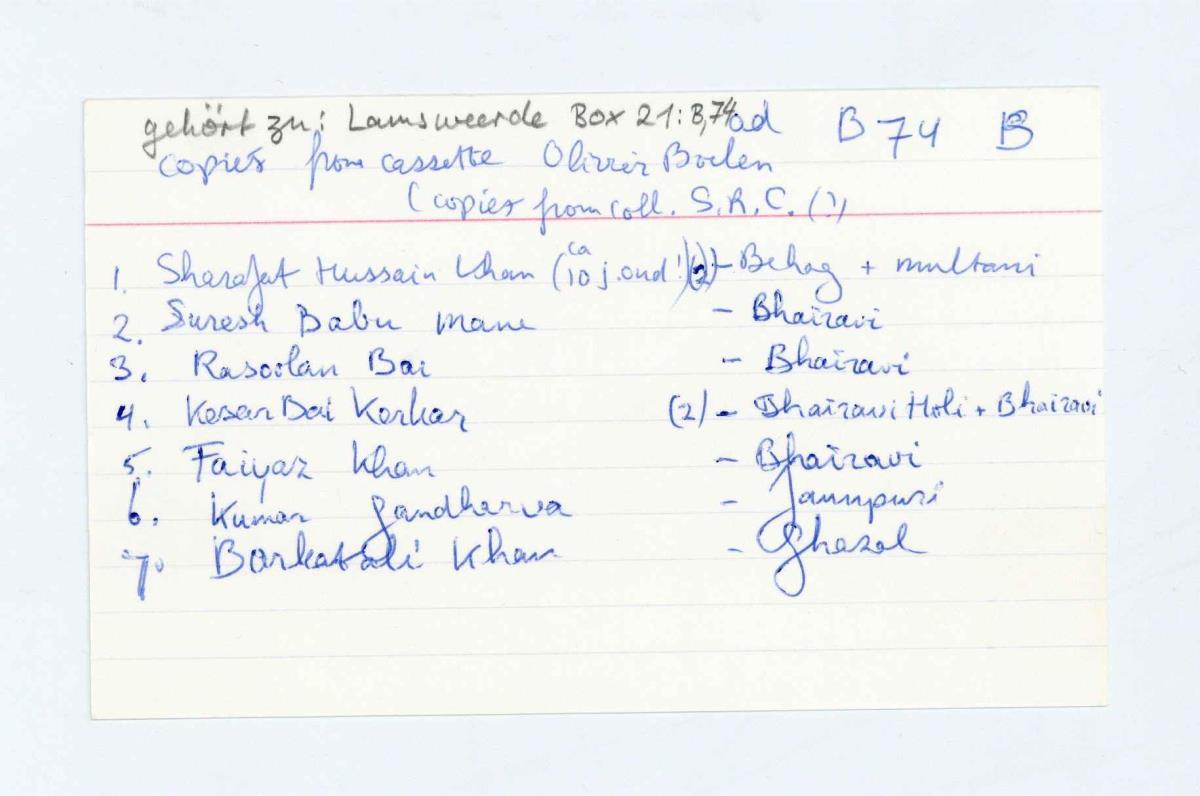 gehört zu: Lamsweerde Box 21: B,74 ad B 74 B
copies from cassette Olivier Boelen
(copies from coll. S.R.C. (?)
1. Sharafat Hussain Khan (ca 10 j. oud!) (2) - Behag + multani
2. Suresh Babu Mane - Bhairavi
3. Rasoolan Bai - Bhairavi
4. Kesar Bai Kerkar (2) - Bhairavi Holi + Bhairavi
5. Faiyaz Khan - Bhairavi
6. Kumar Gandharva - Jaunpuri
7. Barkatali Khan - Ghazal